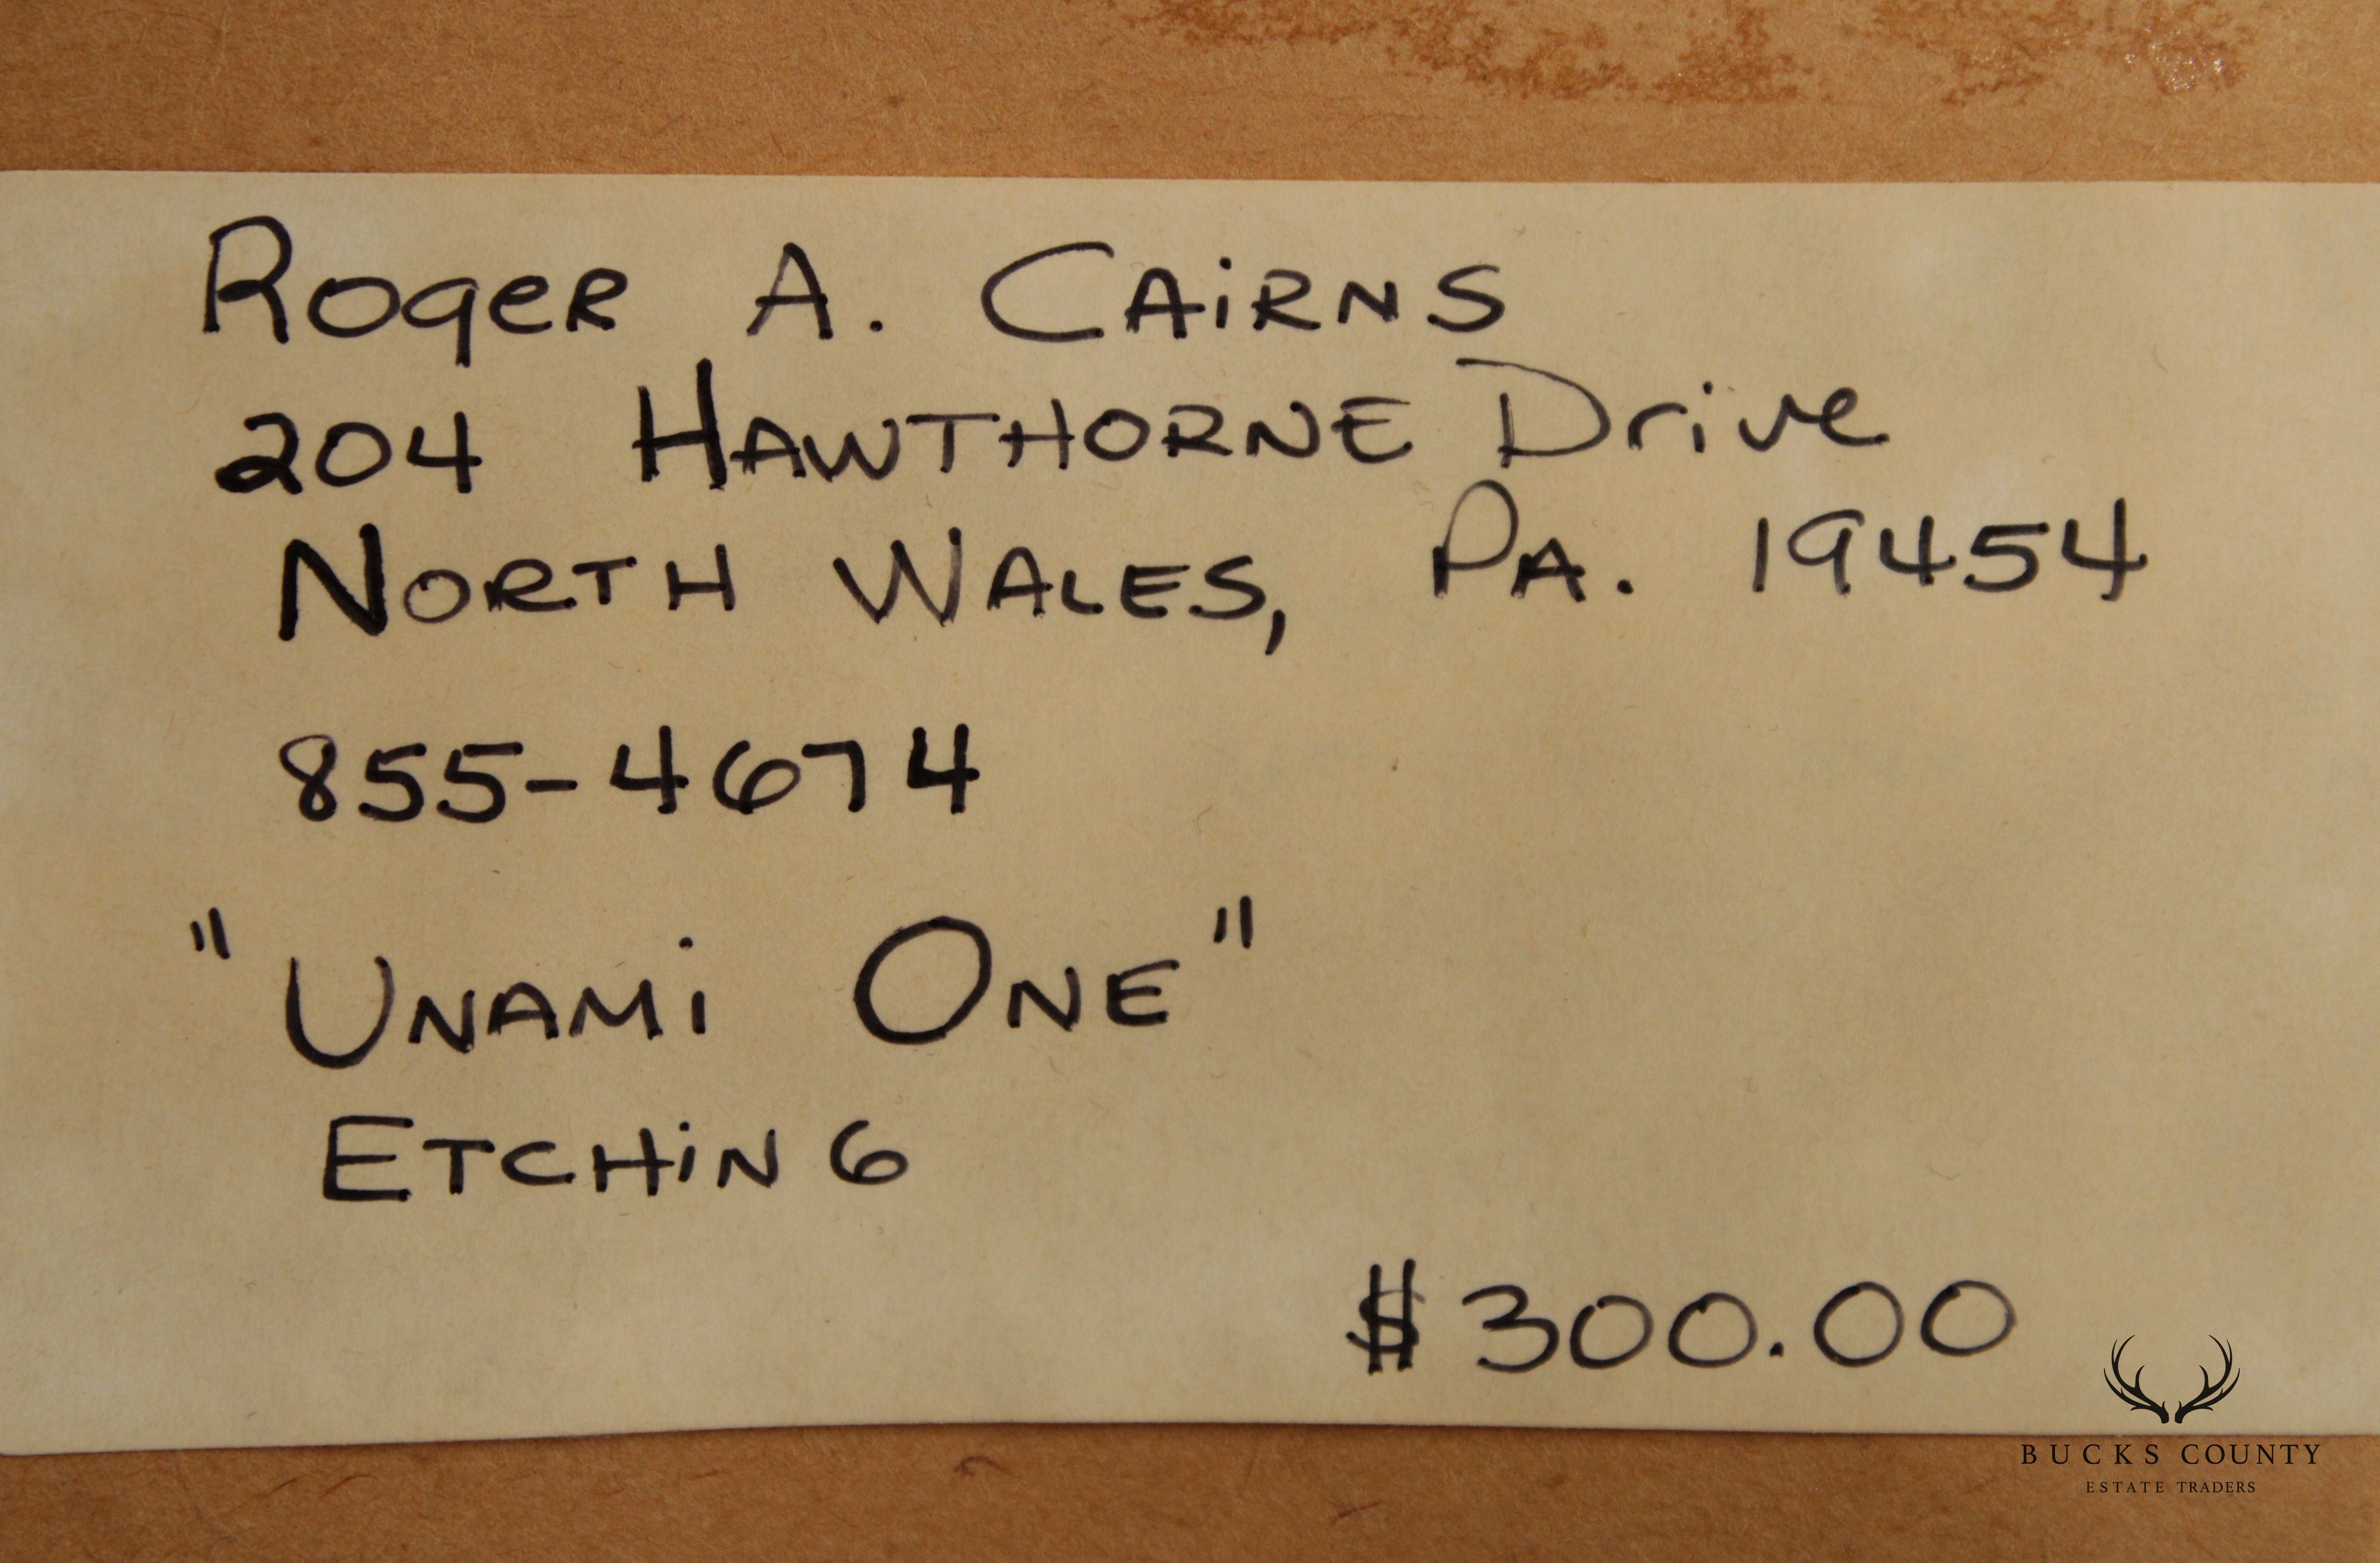 Roger A. Cairns
204 Hawthorne Drive
North Wales, Pa. 19454
855-4674
"Unami One"
Etching
$300.00
BUCKS COUNTY
ESTATE TRADERS